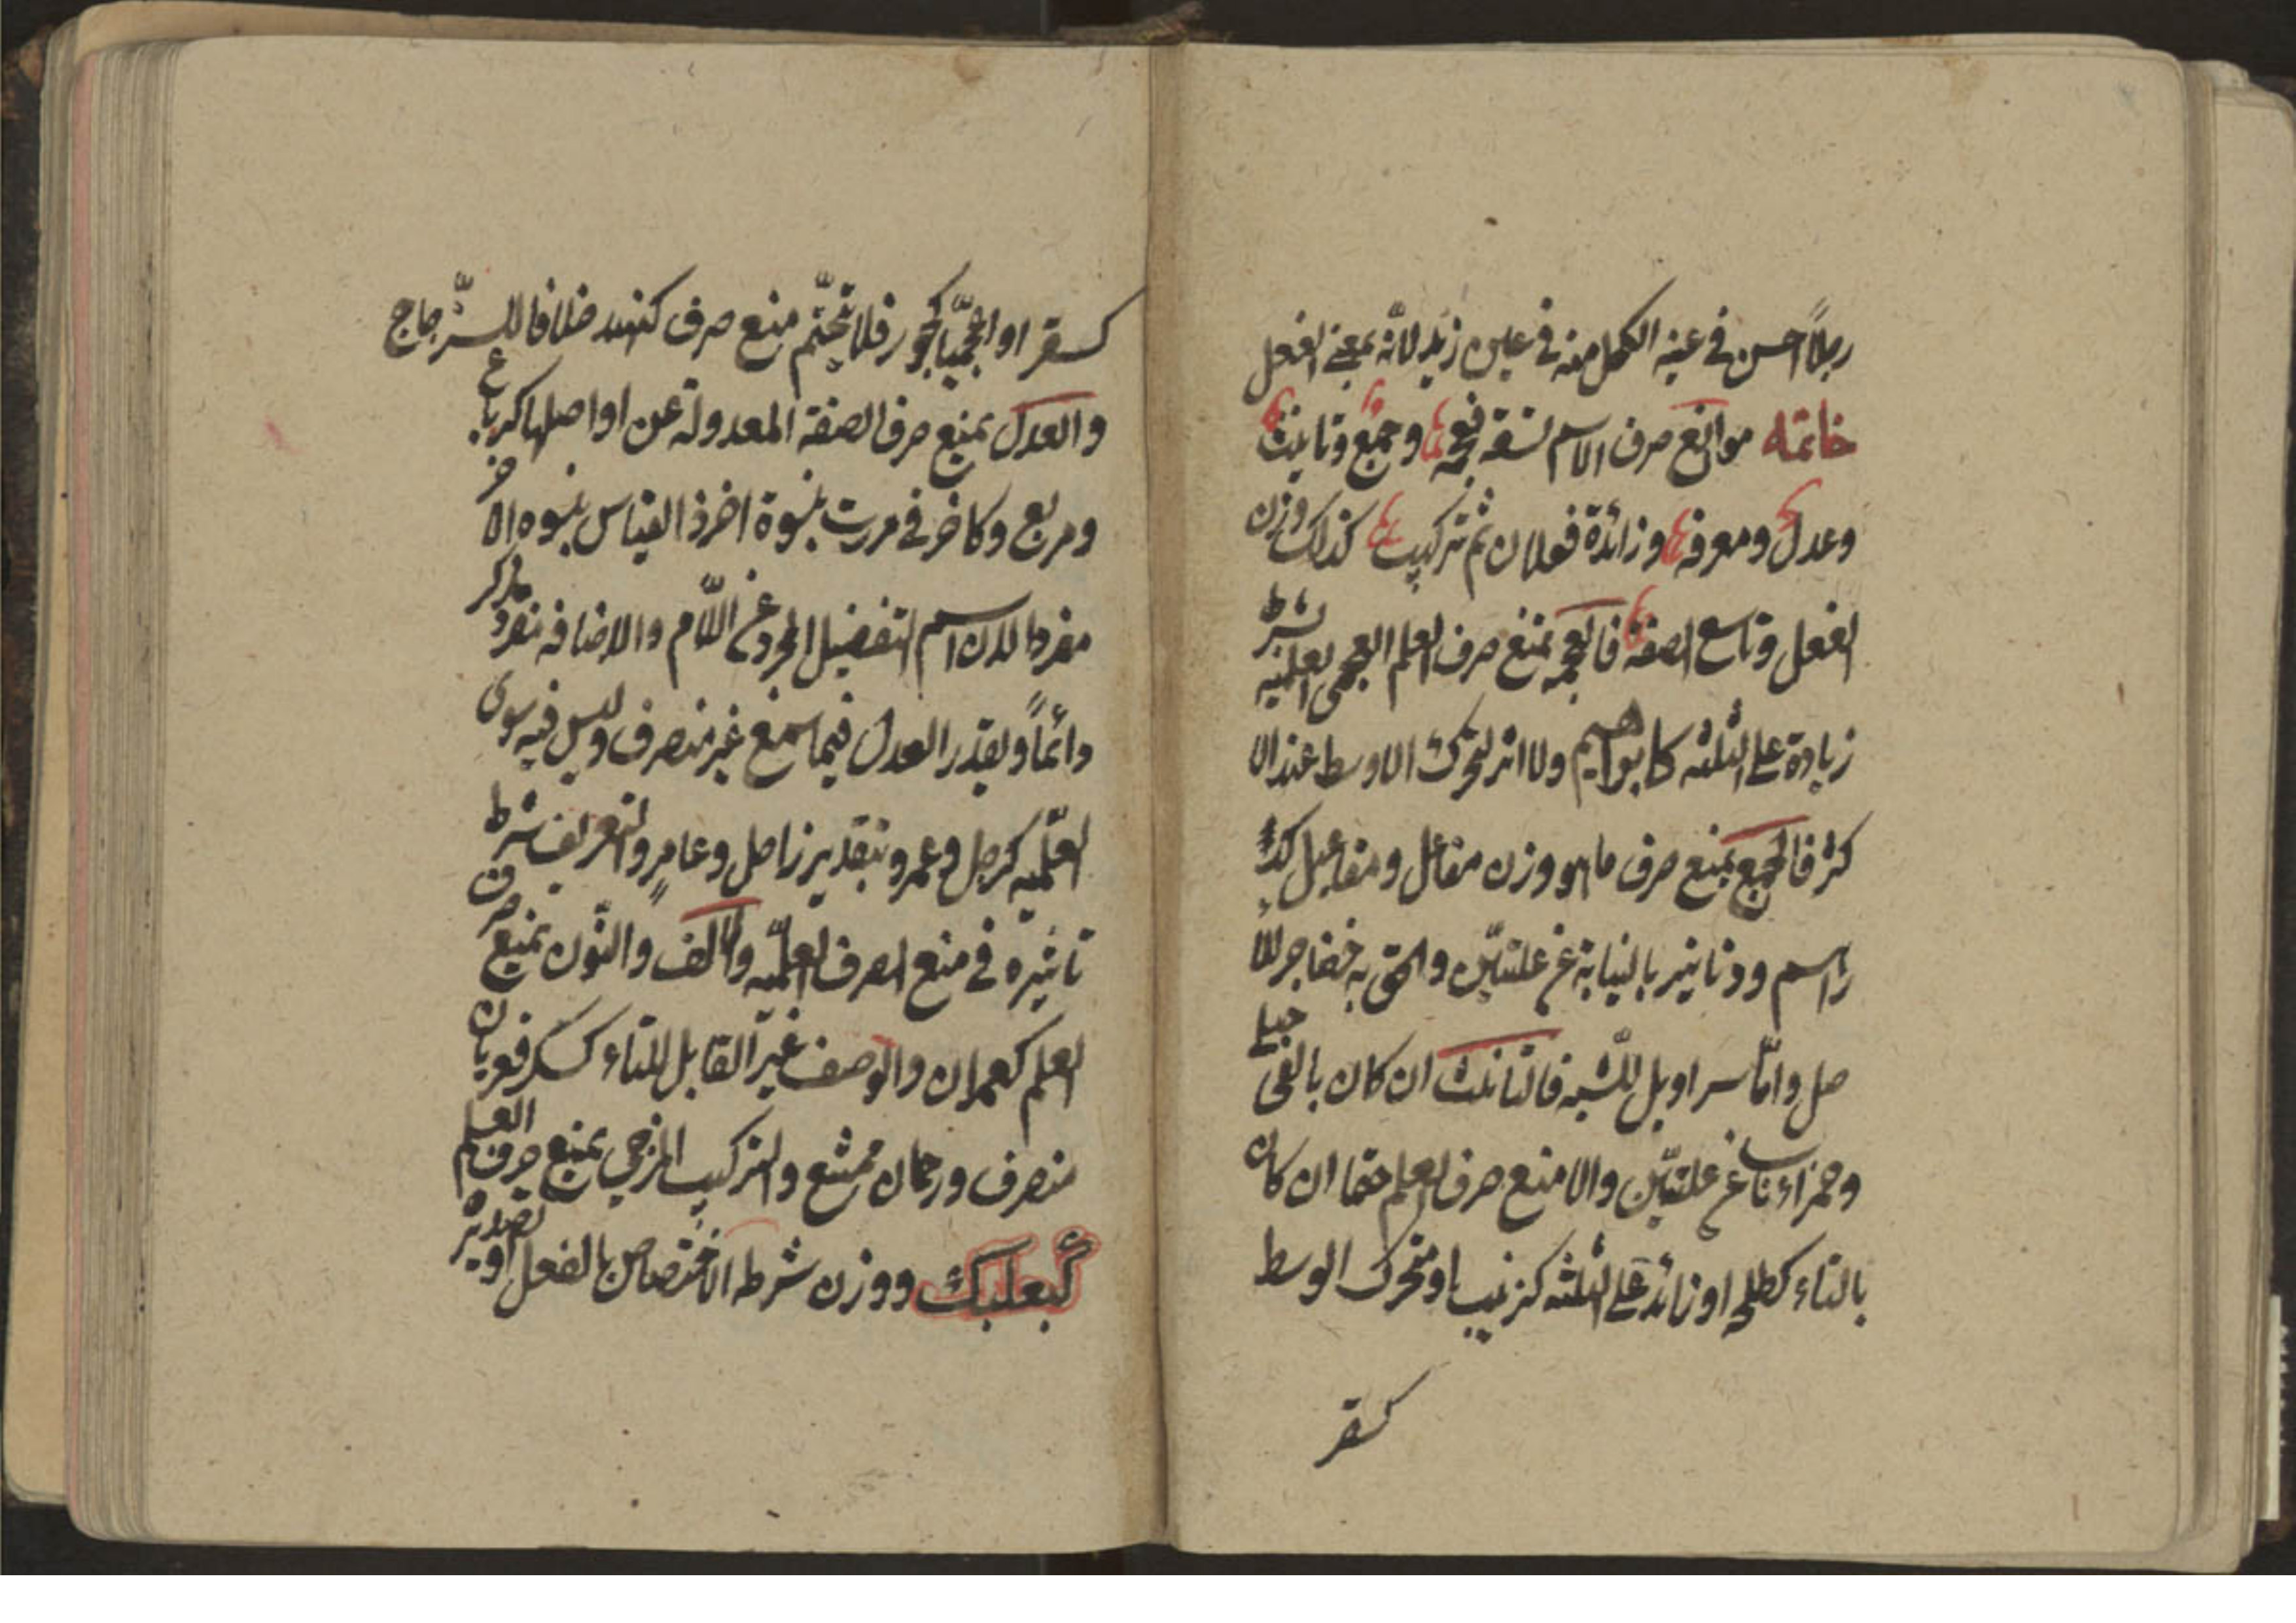 رجلاً احسن في عينه الكحل منه في عين زيد لانه بمعنى الفعل
خاتمه موانع صرف الاسم تسعة فعجمه وجمع وتانيث
وعدل ومعرفه وزائدة فعلان ثم تركيب كذاك وزن
الفعل وتاسع الصفة فالعجمه تمنع صرف العلم العجمي العلميه بشرط
زيادة على الثلثه كابراهيم ولا اثر لتحرك الاوسط عند الا
كثر فالجمع يمنع صرف ما هو وزن مفاعل ومفاعيل كد
راسم ودنانير بالنيابة عن علتين والحق به حضاجر للا
صل وامّا سراويل للشبه فالتانيث ان كان بالفى حبلى
وحمراء ناب عن علتين والا منع صرف العلم حتما ان كان
بالتاء كطلحه او زائد على الثلثه كزينب او متحرك الوسط
كسقر
كسقر او اعجميّا كجور فلا تحتّم منع صرف كهند خلافا للزّجاج
والعدل يمنع صرف الصفة المعدولة عن اواصلها كرباع
ومربع وكاخر في مررت بنسوة اخر اذ القياس بنسوه اخر
مفردا لان اسم التفضيل المجرد عن اللّام والاضافه مفرد مذكر
دائماً ويقدر العدل فيما سمع غير منصرف وليس فيه سوى
العلميه كزحل وعمر وبتقدير زاحل وعامر والتعريف شرط
تاثيره في منع الصرف العلميّه والالف والنّون يمنع صرف
العلم كعمران والوصف غير القابل للتاء كسكران فعريان
منصرف ورحمان ممتنع والتركيب المزجي يمنع صرف العلم
كبعلبك ووزن شرطه الاختصاص بالفعل او تصديره